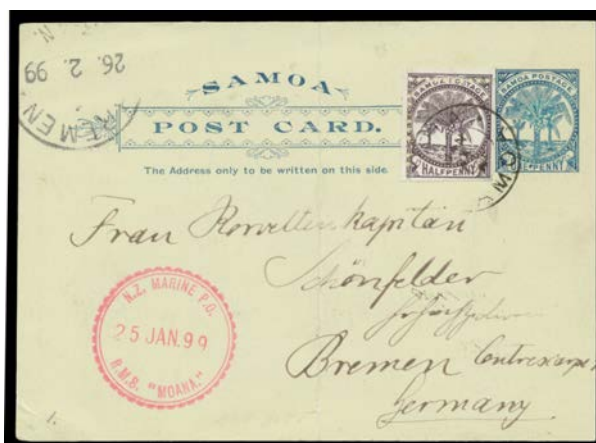 26. 2. 99
SAMOA
POST CARD.
The Address only to be written on this side.
SAMOA POSTAGE
HALFPENNY
SAMOA POSTAGE
PENNY
Frau Korvettenkapitän
Schönfelder
Bremen
Germany.
N.Z. MARINE P.O.
25 JAN. 99
R.M.S. "MOANA."
1.